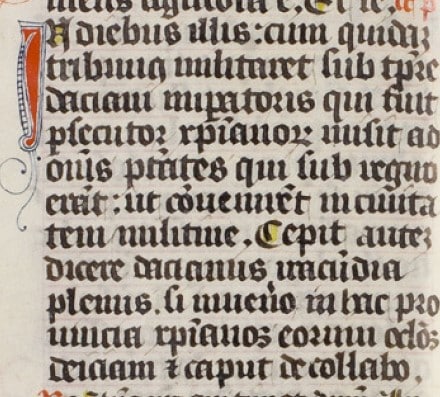 In diebus illis: cum quidaꝫ
tribunꝰ militaret sub tp̄re
daciani imꝑatoris qui fuit
ꝑsecutoꝝ xp̄ianoꝝ misit ad
om̄s ptātes qui sub regno
erāt: ut cōuenirēt in ciuita
tem militine. Cepit auteꝫ
dicere dacianus iracūdia
plenus. si inuen̄o in hac pro
uincia xp̄ianos eorum oclōs
deiciam ⁊ caput decollabo.